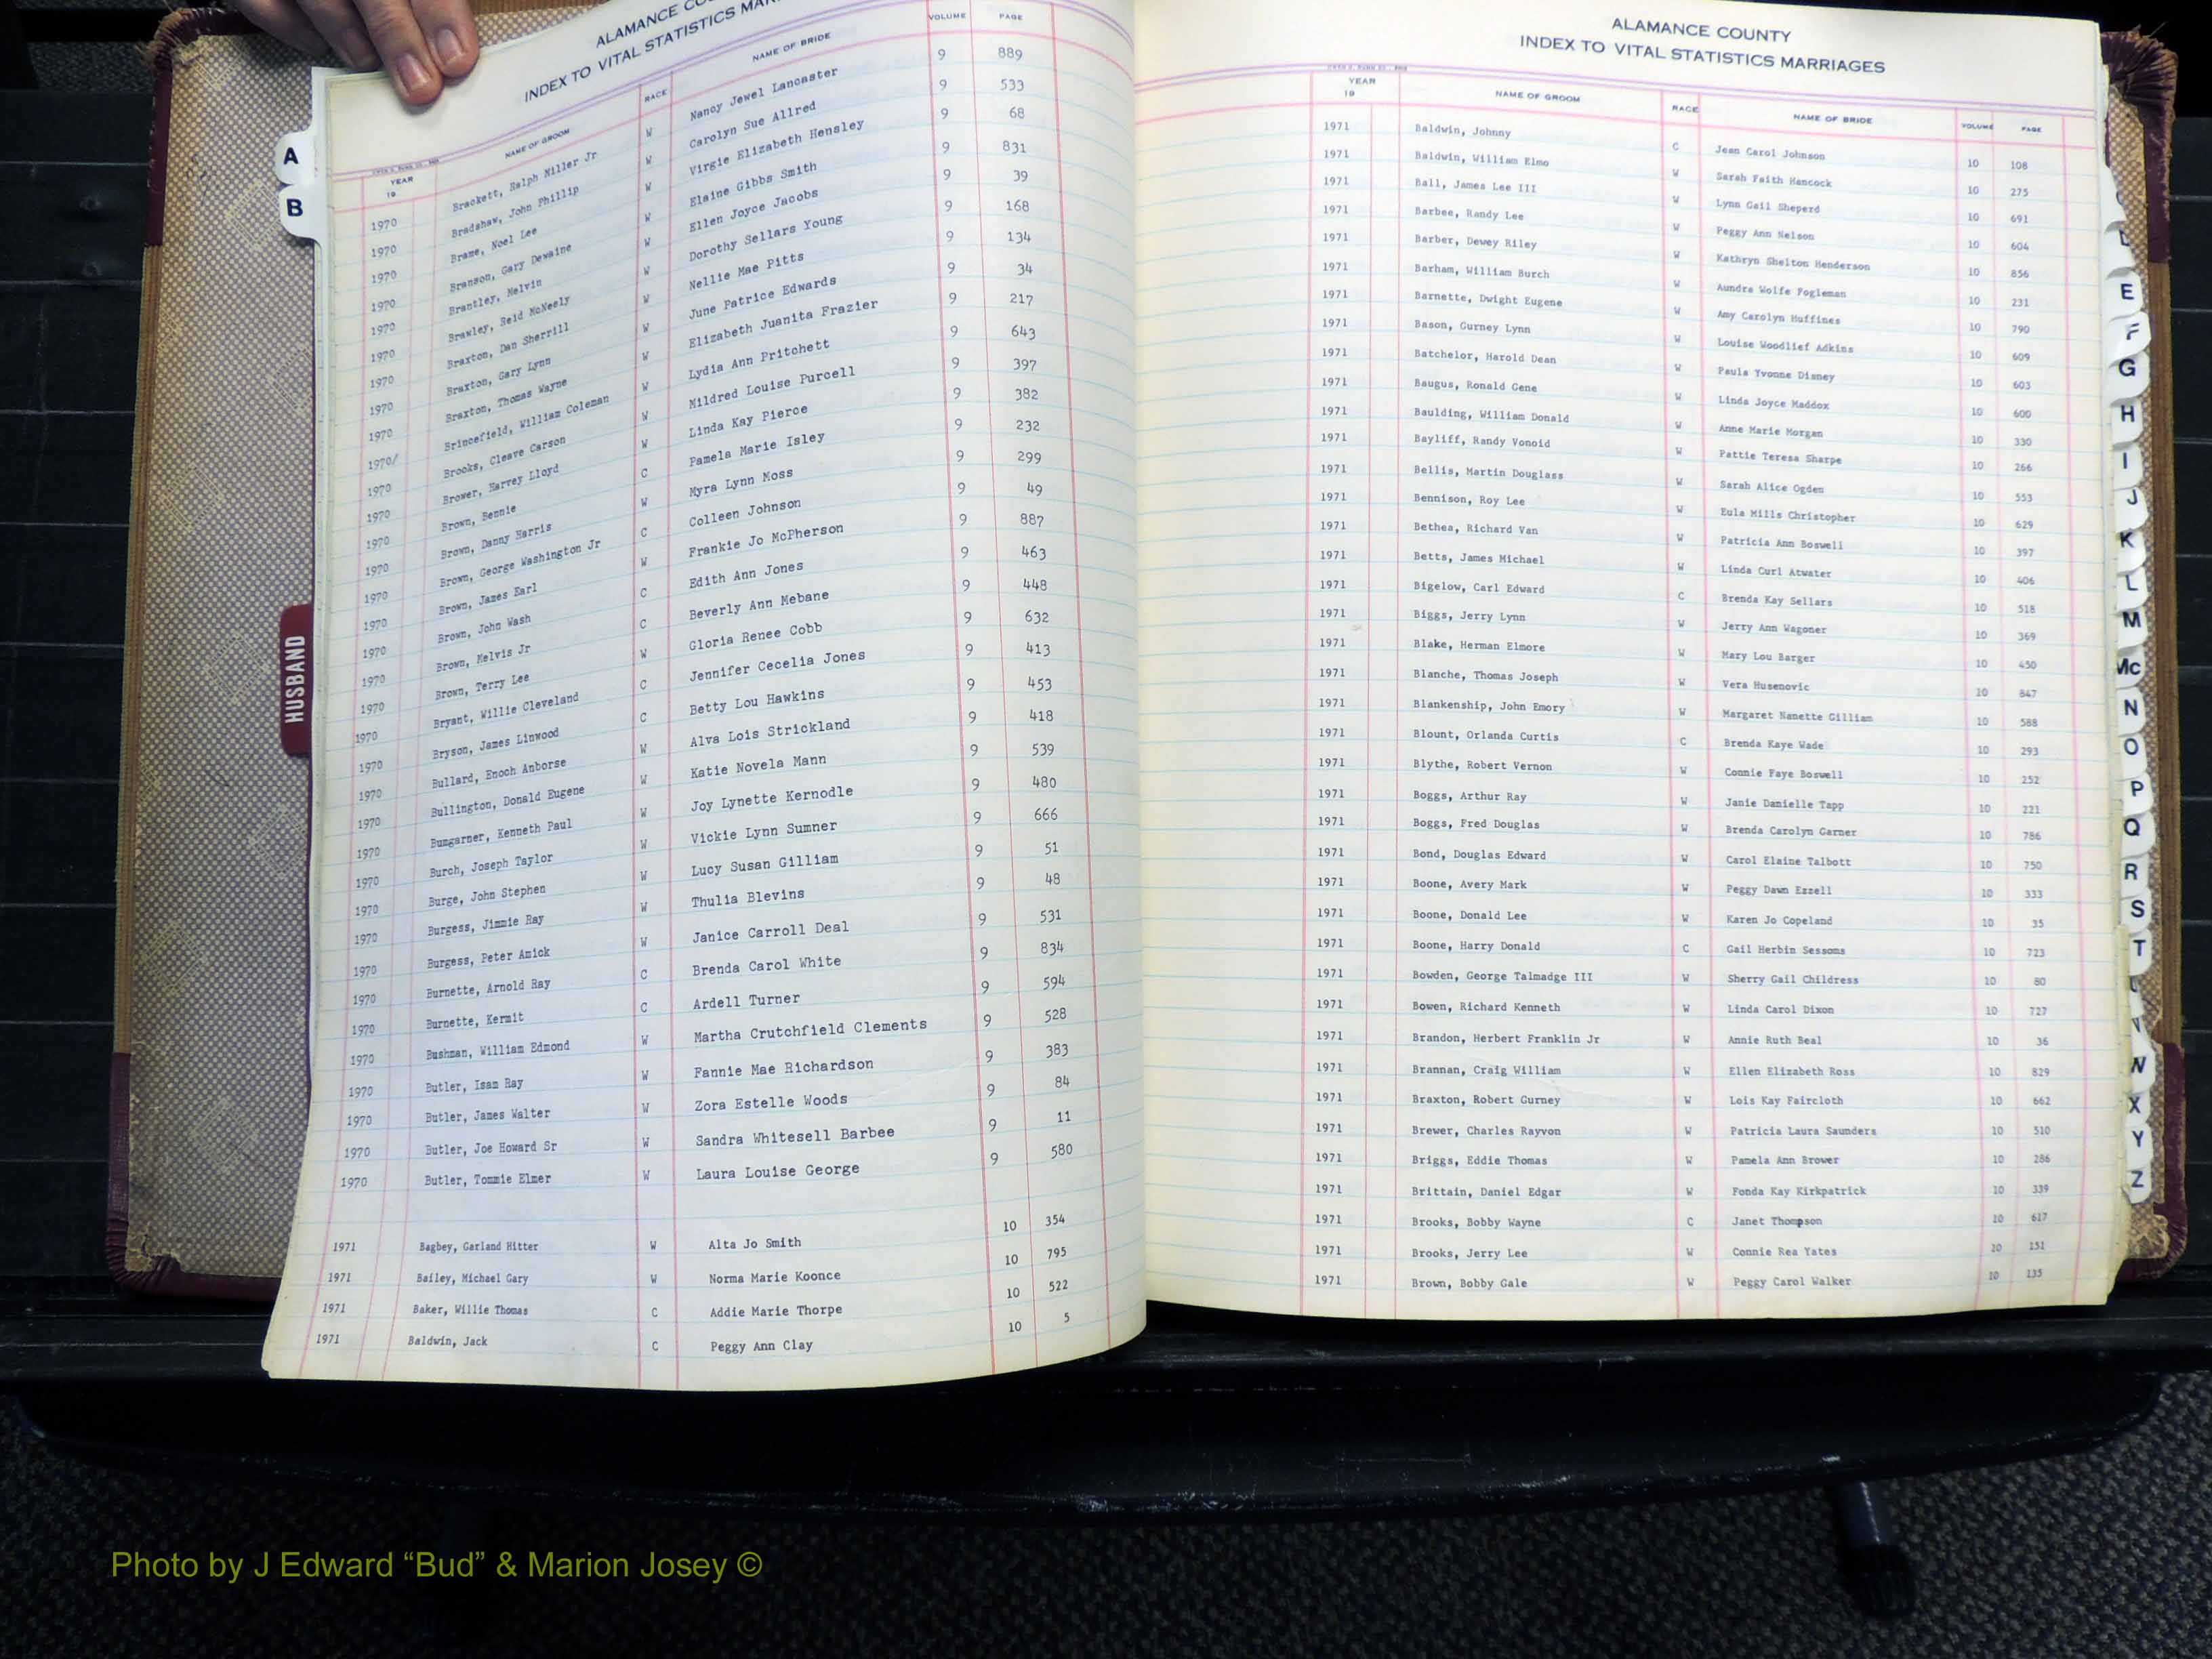 ALAMANCE CO
INDEX TO VITAL STATISTICS MAR
YEAR 19 NAME OF GROOM RACE NAME OF BRIDE VOLUME PAGE
1970 Brackett, Ralph Miller Jr W Nancy Jewel Lancaster 9 889
1970 Bradshaw, John Phillip W Carolyn Sue Allred 9 533
1970 Brame, Noel Lee W Virgie Elizabeth Hensley 9 68
1970 Branson, Gary Dewaine W Elaine Gibbs Smith 9 831
1970 Brantley, Melvin W Ellen Joyce Jacobs 9 39
1970 Brawley, Reid McNeely W Dorothy Sellars Young 9 168
1970 Braxton, Dan Sherrill W Nellie Mae Pitts 9 134
1970 Braxton, Gary Lynn W June Patrice Edwards 9 34
1970 Braxton, Thomas Wayne W Elizabeth Juanita Frazier 9 217
1970/ Brincefield, William Coleman W Lydia Ann Pritchett 9 643
1970 Brooks, Cleave Carson W Mildred Louise Purcell 9 397
1970 Brower, Harvey Lloyd W Linda Kay Pierce 9 382
1970 Brown, Bennie C Pamela Marie Isley 9 232
1970 Brown, Danny Harris W Myra Lynn Moss 9 299
1970 Brown, George Washington Jr C Colleen Johnson 9 49
1970 Brown, James Earl W Frankie Jo McPherson 9 887
1970 Brown, John Wash C Edith Ann Jones 9 463
1970 Brown, Melvis Jr C Beverly Ann Mebane 9 448
1970 Brown, Terry Lee W Gloria Renee Cobb 9 632
1970 Bryant, Willie Cleveland C Jennifer Cecelia Jones 9 413
1970 Bryson, James Linwood C Betty Lou Hawkins 9 453
1970 Bullard, Enoch Anborse W Alva Lois Strickland 9 418
1970 Bullington, Donald Eugene W Katie Novela Mann 9 539
1970 Bumgarner, Kenneth Paul W Joy Lynette Kernodle 9 480
1970 Burch, Joseph Taylor W Vickie Lynn Sumner 9 666
1970 Burge, John Stephen W Lucy Susan Gilliam 9 51
1970 Burgess, Jimmie Ray W Thulia Blevins 9 48
1970 Burgess, Peter Amick W Janice Carroll Deal 9 531
1970 Burnette, Arnold Ray C Brenda Carol White 9 834
1970 Burnette, Kermit C Ardell Turner 9 594
1970 Bushman, William Edmond W Martha Crutchfield Clements 9 528
1970 Butler, Isam Ray W Fannie Mae Richardson 9 383
1970 Butler, James Walter W Zora Estelle Woods 9 84
1970 Butler, Joe Howard Sr W Sandra Whitesell Barbee 9 11
1970 Butler, Tommie Elmer W Laura Louise George 9 580
1971 Bagbey, Garland Hitter W Alta Jo Smith 10 354
1971 Bailey, Michael Gary W Norma Marie Koonce 10 795
1971 Baker, Willie Thomas C Addie Marie Thorpe 10 522
1971 Baldwin, Jack C Peggy Ann Clay 10 5
A
B
HUSBAND
ALAMANCE COUNTY
INDEX TO VITAL STATISTICS MARRIAGES
YEAR 19 NAME OF GROOM RACE NAME OF BRIDE VOLUME PAGE
1971 Baldwin, Johnny C Jean Carol Johnson 10 108
1971 Baldwin, William Elmo W Sarah Faith Hancock 10 275
1971 Ball, James Lee III W Lynn Gail Sheperd 10 691
1971 Barbee, Randy Lee W Peggy Ann Nelson 10 604
1971 Barber, Dewey Riley W Kathryn Shelton Henderson 10 856
1971 Barham, William Burch W Aundra Wolfe Fogleman 10 231
1971 Barnette, Dwight Eugene W Amy Carolyn Huffines 10 790
1971 Bason, Gurney Lynn W Louise Woodlief Adkins 10 609
1971 Batchelor, Harold Dean W Paula Yvonne Disney 10 603
1971 Baugus, Ronald Gene W Linda Joyce Maddox 10 600
1971 Baulding, William Donald W Anne Marie Morgan 10 330
1971 Bayliff, Randy Vonoid W Pattie Teresa Sharpe 10 266
1971 Bellis, Martin Douglass W Sarah Alice Ogden 10 553
1971 Bennison, Roy Lee W Eula Mills Christopher 10 629
1971 Bethea, Richard Van W Patricia Ann Boswell 10 397
1971 Betts, James Michael W Linda Curl Atwater 10 406
1971 Bigelow, Carl Edward C Brenda Kay Sellars 10 518
1971 Biggs, Jerry Lynn W Jerry Ann Wagoner 10 369
1971 Blake, Herman Elmore W Mary Lou Barger 10 450
1971 Blanche, Thomas Joseph W Vera Husenovic 10 847
1971 Blankenship, John Emory W Margaret Nanette Gilliam 10 588
1971 Blount, Orlanda Curtis C Brenda Kaye Wade 10 293
1971 Blythe, Robert Vernon W Connie Faye Boswell 10 252
1971 Boggs, Arthur Ray W Janie Danielle Tapp 10 221
1971 Boggs, Fred Douglas W Brenda Carolyn Garner 10 786
1971 Bond, Douglas Edward W Carol Elaine Talbott 10 750
1971 Boone, Avery Mark W Peggy Dawn Ezzell 10 333
1971 Boone, Donald Lee W Karen Jo Copeland 10 35
1971 Boone, Harry Donald C Gail Herbin Sessoms 10 723
1971 Bowden, George Talmadge III W Sherry Gail Childress 10 80
1971 Bowen, Richard Kenneth W Linda Carol Dixon 10 727
1971 Brandon, Herbert Franklin Jr W Annie Ruth Beal 10 36
1971 Brannan, Craig William W Ellen Elizabeth Ross 10 829
1971 Braxton, Robert Gurney W Lois Kay Faircloth 10 662
1971 Brewer, Charles Rayvon W Patricia Laura Saunders 10 510
1971 Briggs, Eddie Thomas W Pamela Ann Brower 10 286
1971 Brittain, Daniel Edgar W Fonda Kay Kirkpatrick 10 339
1971 Brooks, Bobby Wayne C Janet Thompson 10 617
1971 Brooks, Jerry Lee W Connie Rea Yates 10 151
1971 Brown, Bobby Gale W Peggy Carol Walker 10 135
E
F
G
H
I
J
K
L
M
Mc
N
O
P
Q
R
S
T
V
W
X
Y
Z
Photo by J Edward “Bud” & Marion Josey ©